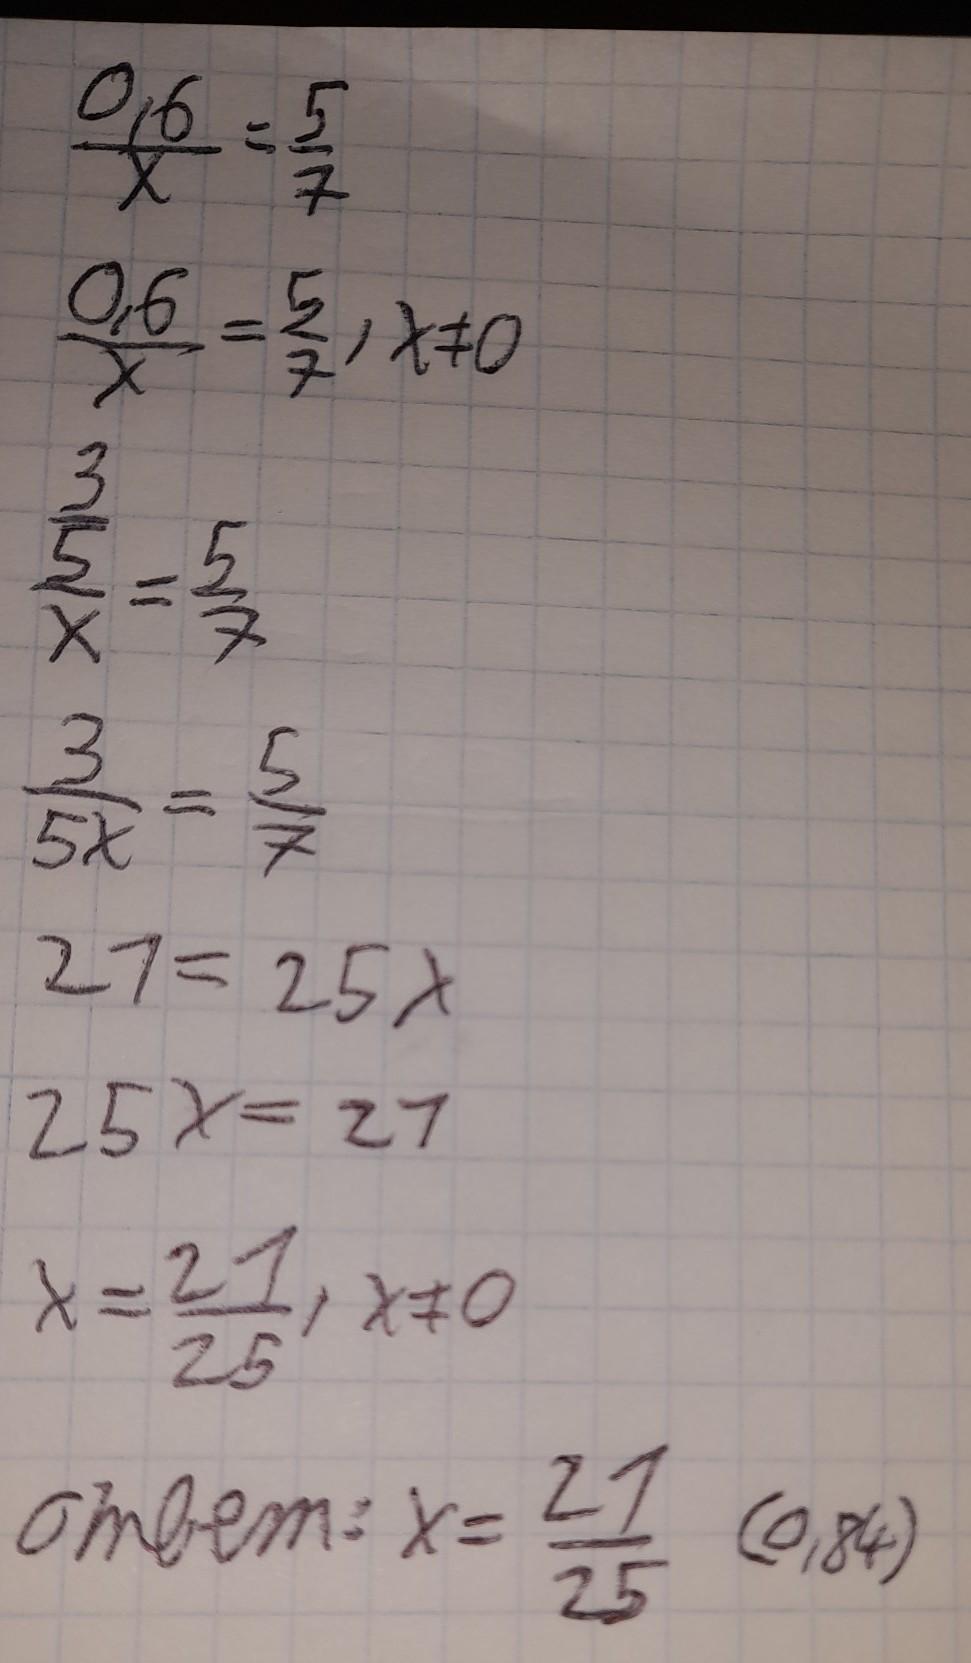 0,6/x = 5/7
0,6/x = 5/7, x≠0
3/5/x = 5/7
3/5x = 5/7
21 = 25x
25x = 21
x = 21/25, x≠0
ответ: x = 21/25 (0,84)